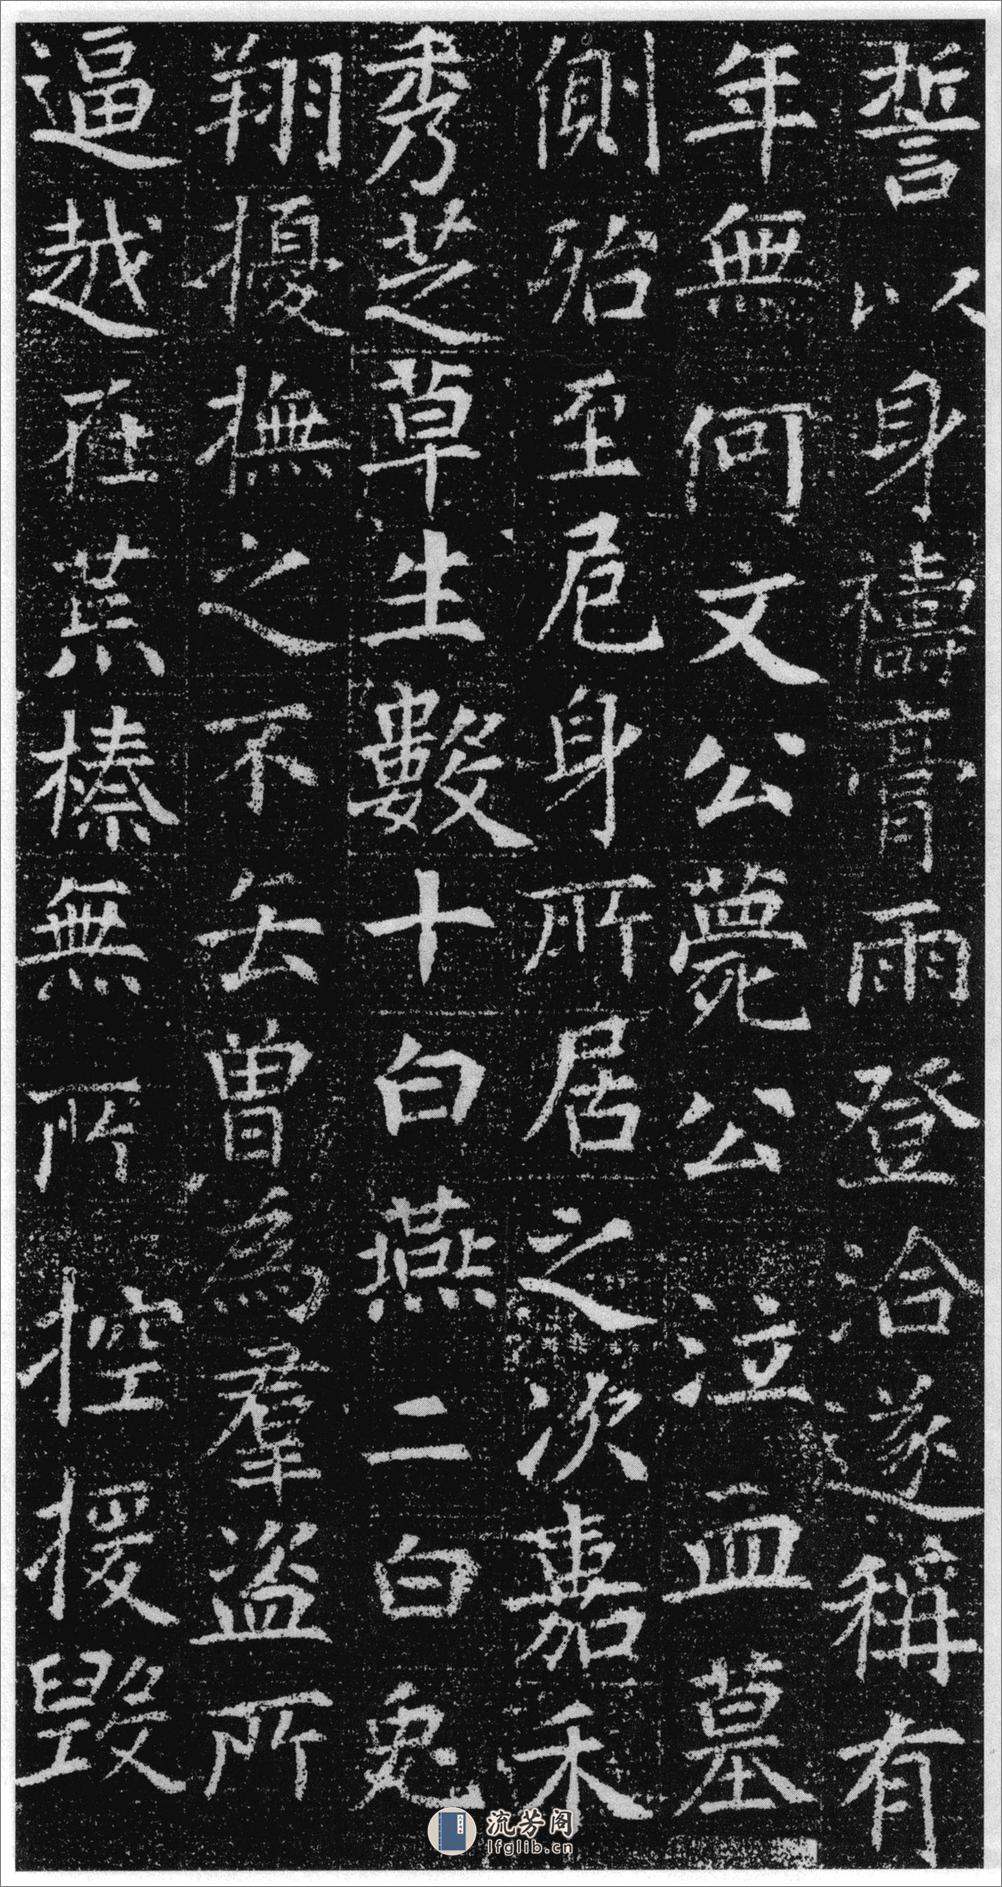 誓以身禱膏雨登洽遂稱有
年無何文公薨公泣血墓
側殆至危身所居之次嘉禾
秀芝草生數十白燕二白兎
翔擾撫之不去曾為羣盜所
逼越在蕪榛無所控援毀
流芳阁
lfglib.cn